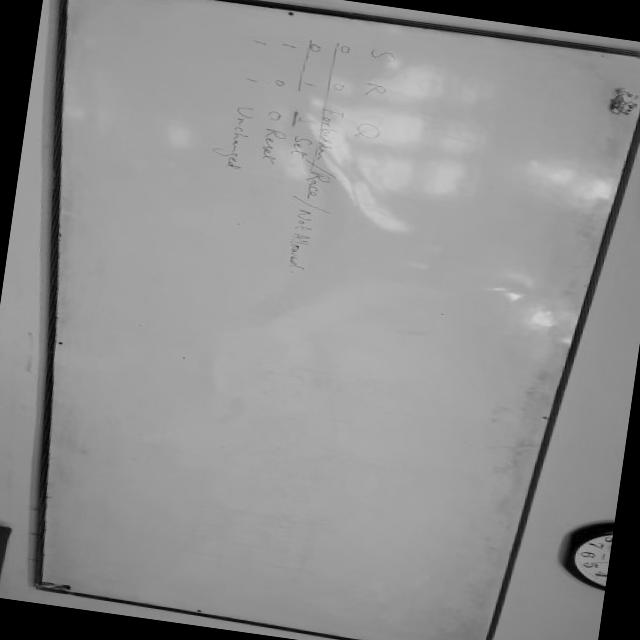 S R Q
0 0 Invalid/Race/Not Allowed
0 1 1 Set
1 0 0 Reset
1 1 Unchanged